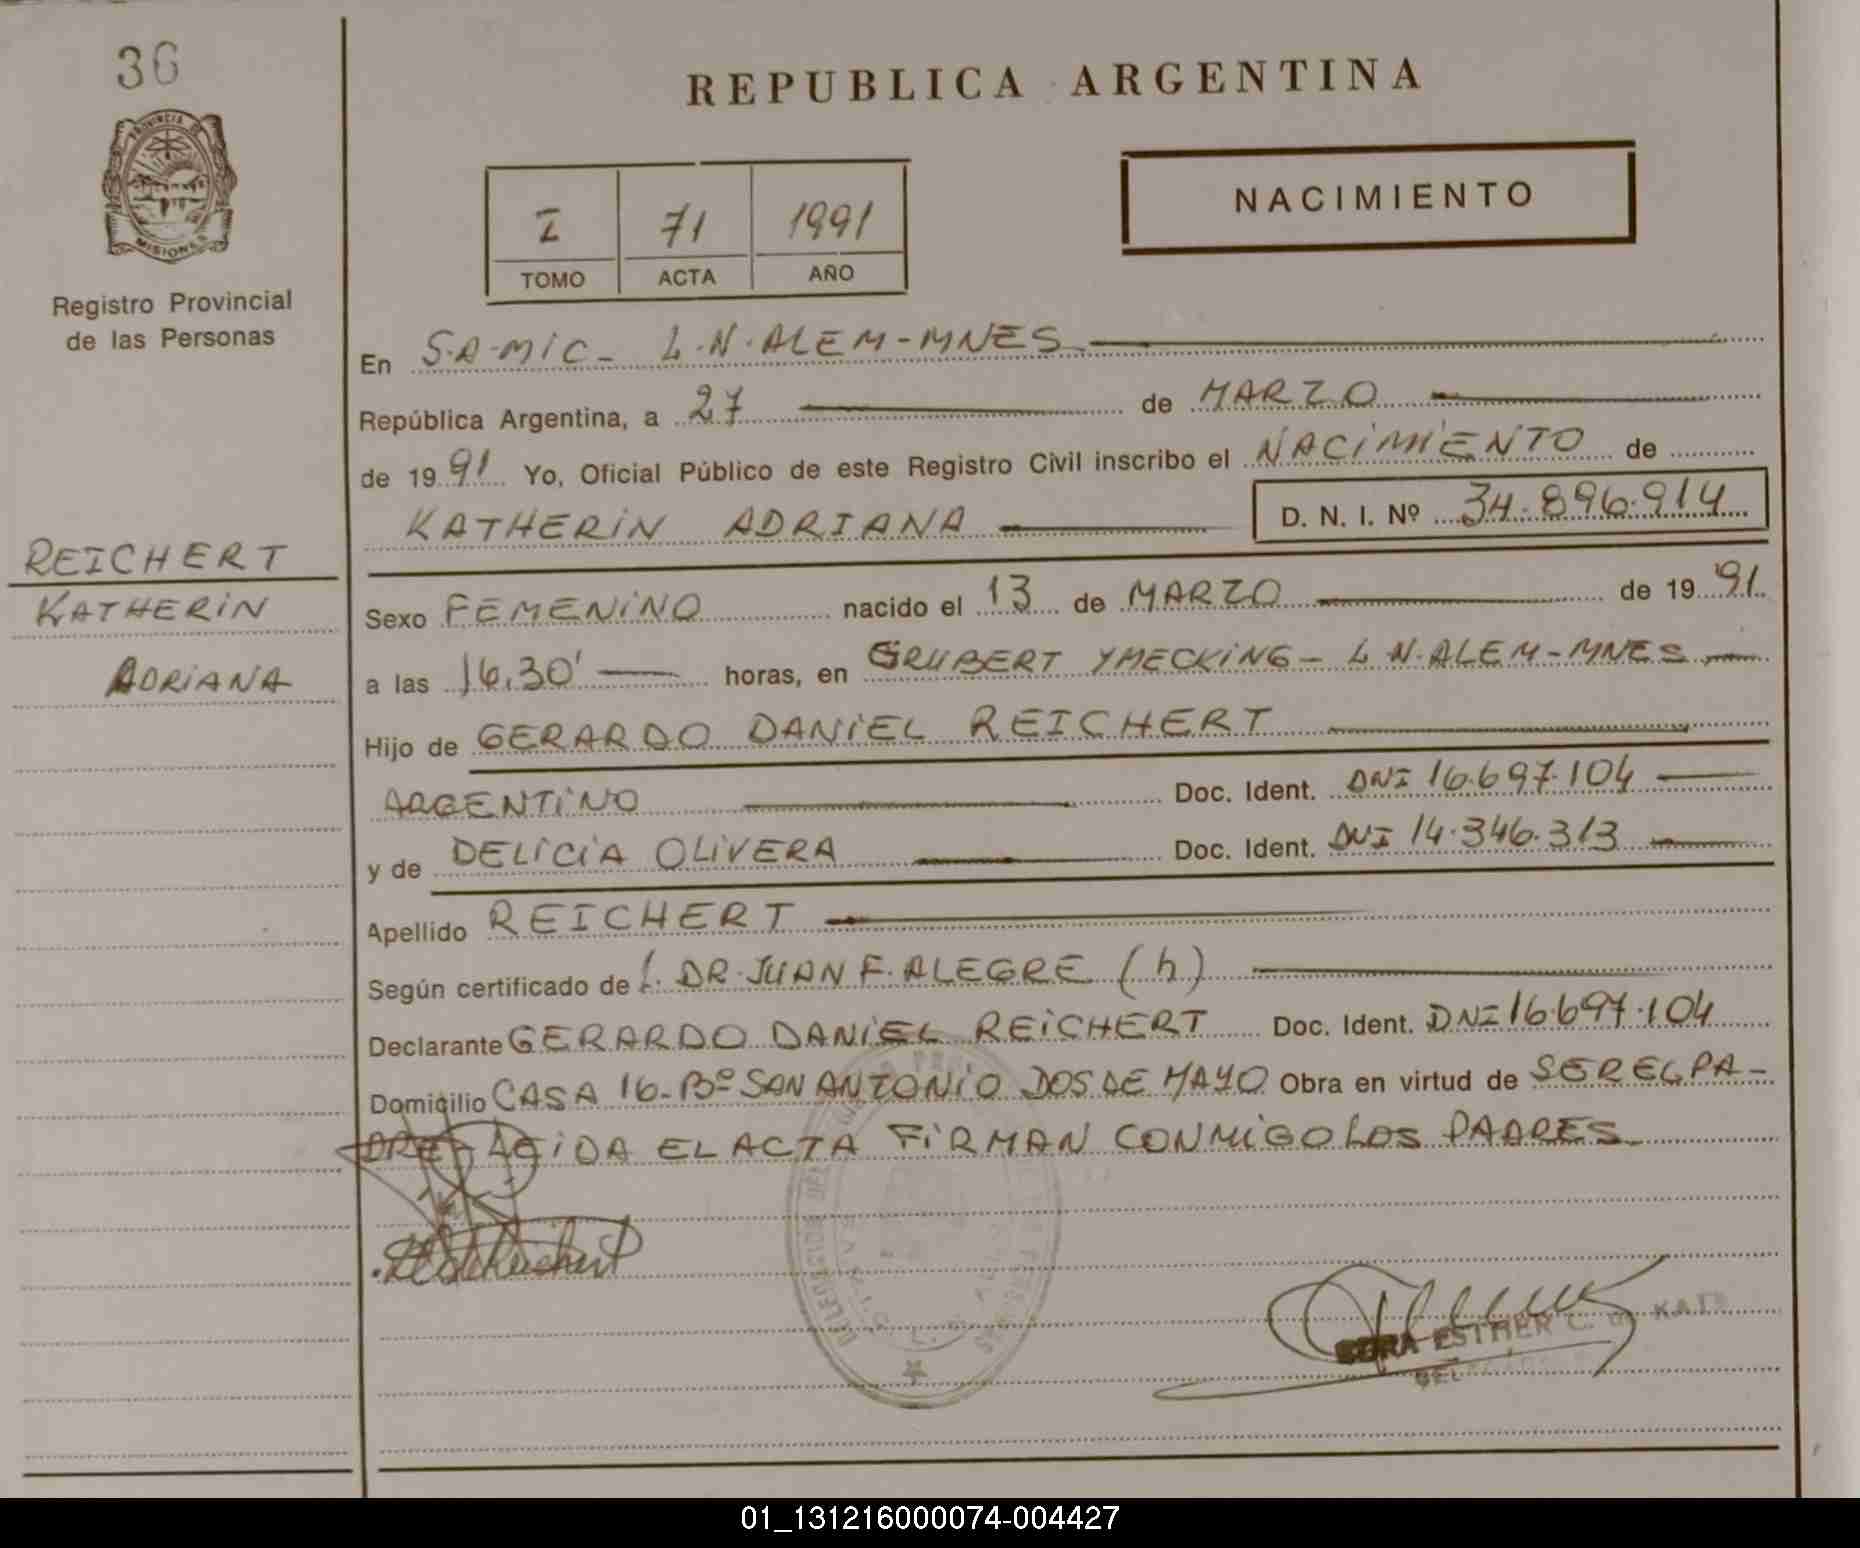 36
PROVINCIA DE
MISIONES
Registro Provincial
de las Personas
REICHERT
KATHERIN
ADRIANA
REPUBLICA ARGENTINA
NACIMIENTO
I 71 1991
TOMO ACTA AÑO
En S.A.MIC- L.N.ALEM-MNES
República Argentina, a 27 de MARZO
de 1991 Yo, Oficial Público de este Registro Civil inscribo el NACIMIENTO de
KATHERIN ADRIANA D. N. I. Nº 34.896.914
Sexo FEMENINO nacido el 13 de MARZO de 1991
a las 16,30' horas, en GRUBERT YMECKING- L N.ALEM-MNES
Hijo de GERARDO DANIEL REICHERT
ARGENTINO Doc. Ident. DNI 16.697.104
y de DELICIA OLIVERA Doc. Ident. DNI 14.346.313
Apellido REICHERT
Según certificado de DR.JUAN F.ALEGRE (h)
Declarante GERARDO DANIEL REICHERT Doc. Ident. DNI 16.697.104
Domicilio CASA 16-Bº SAN ANTONIO DOS DE MAYO Obra en virtud de SEREGPA-
DRE-LEIDA EL ACTA FIRMAN CONMIGO LOS PADRES
ESTHER C. de
01_131216000074-004427